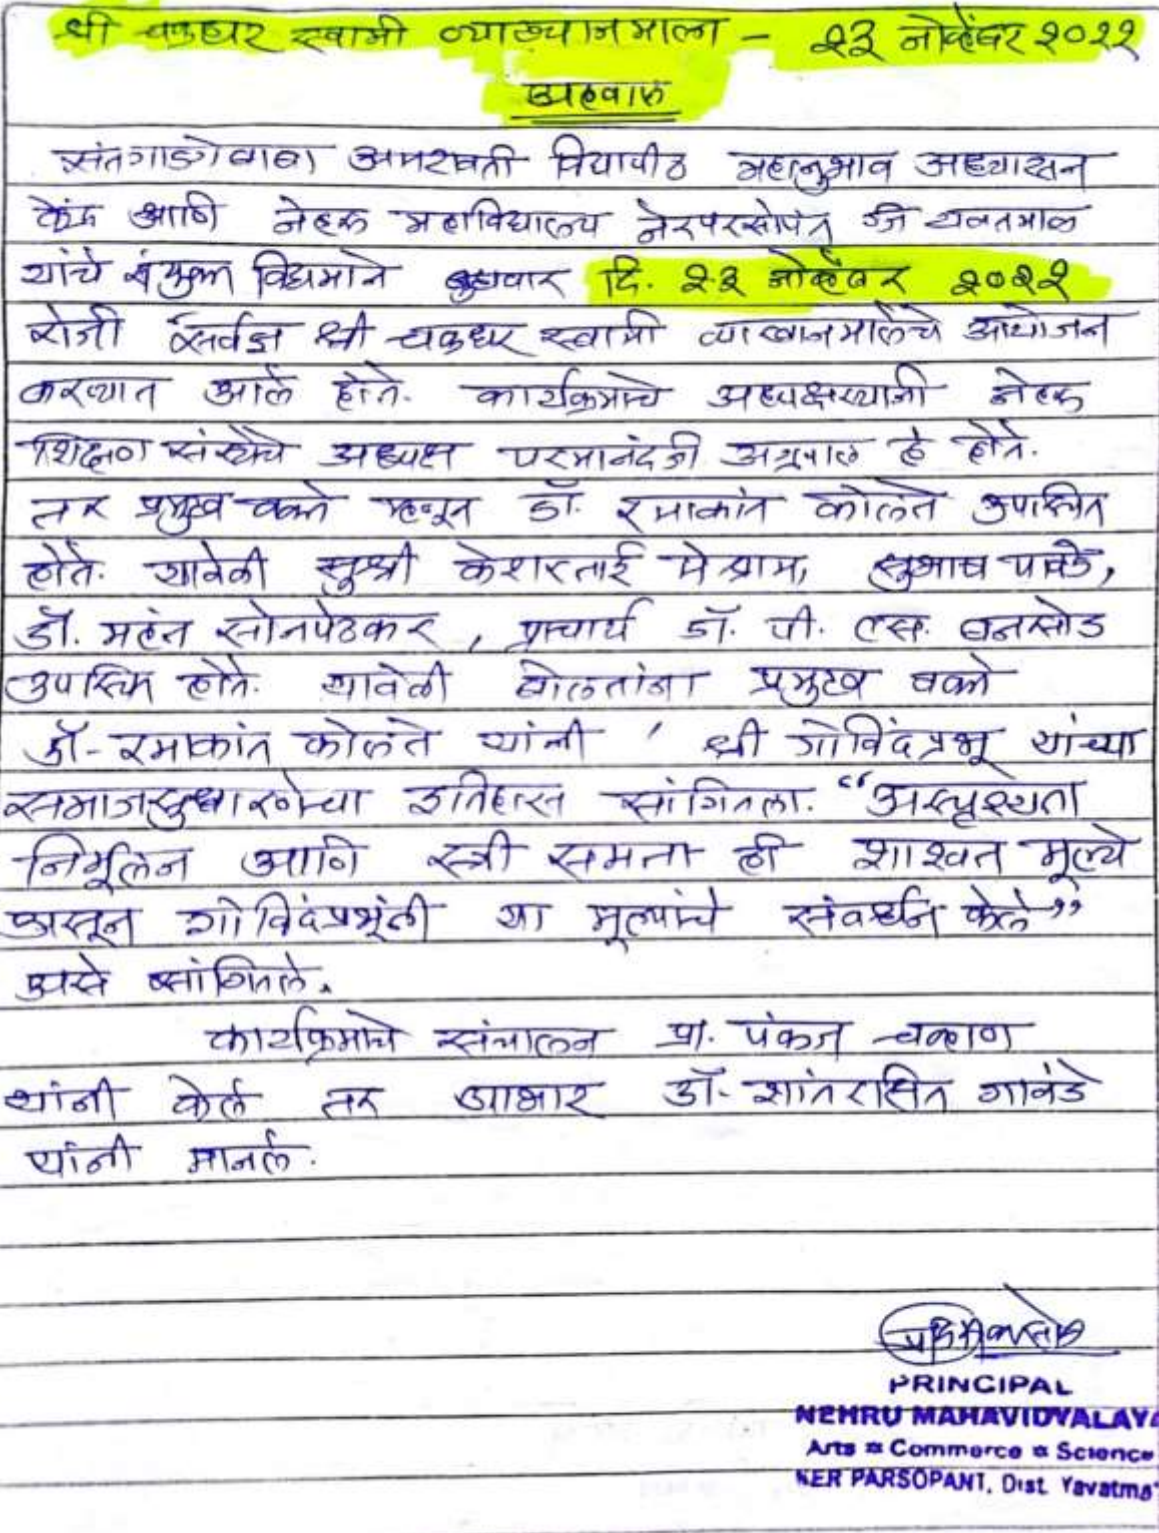 श्री चक्रधर स्वामी व्याख्यानमाला - २३ नोव्हेंबर २०२२
अहवाल
संतगाडगेबाबा अमरावती विद्यापीठ महानुभाव अध्यासन
केंद्र आणि नेहरू महाविद्यालय नेरपरसोपंत जि यवतमाळ
यांचे संयुक्त विद्यमाने बुधवार दि. २३ नोव्हेंबर २०२२
रोजी सर्वज्ञ श्री चक्रधर स्वामी व्याखानमालेचे आयोजन
करण्यात आले होते. कार्यक्रमाचे अध्यक्षस्थानी नेहरू
शिक्षण संस्थेचे अध्यक्ष परमानंदजी अग्रवाल हे होते.
तर प्रमुख वक्ते म्हणून डॉ. रमाकांत कोलते उपस्थित
होते. यावेळी सुश्री केशरताई मेश्राम, सुभाष पावडे,
डॉ. महंत सोनपेठकर, प्राचार्य डॉ. पी. एस. बनसोड
उपस्थित होते. यावेळी बोलतांना प्रमुख वक्ते
डॉ-रमाकांत कोलते यांनी ' श्री गोविंदप्रभू यांच्या
समाजसुधारणेचा इतिहास सांगितला. “अस्पृश्यता
निर्मूलन आणि स्त्री समता ही शाश्वत मूल्ये
असून गोविंदप्रभूंनी या मूल्यांचे संवर्धन केले”
असे सांगितले.
कार्यक्रमाचे संचालन प्रा. पंकज चव्हाण
यांनी केले तर आभार डॉ- शांतरक्षित गावंडे
यांनी मानले.
PRINCIPAL
NEHRU MAHAVIDYALAYA
Arts ¤ Commerce ¤ Science
NER PARSOPANT, Dist. Yavatmal